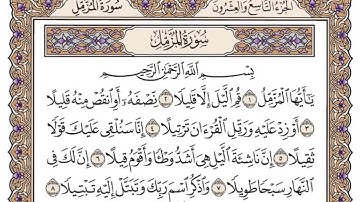 الجزء التاسع والعشرون
سورة المزمل
سُورَةُ المُزَّمِّلِ
بِسْمِ اللَّهِ الرَّحْمَٰنِ الرَّحِيمِ
يَٰٓأَيُّهَا ٱلْمُزَّمِّلُ ١ قُمِ ٱلَّيْلَ إِلَّا قَلِيلًا ٢ نِّصْفَهُۥٓ أَوِ ٱنقُصْ مِنْهُ قَلِيلًا
٣ أَوْ زِدْ عَلَيْهِ وَرَتِّلِ ٱلْقُرْءَانَ تَرْتِيلًا ٤ إِنَّا سَنُلْقِى عَلَيْكَ قَوْلًا
ثَقِيلًا ٥ إِنَّ نَاشِئَةَ ٱلَّيْلِ هِىَ أَشَدُّ وَطْـًٔا وَأَقْوَمُ قِيلًا ٦ إِنَّ لَكَ فِى
ٱلنَّهَارِ سَبْحًا طَوِيلًا ٧ وَٱذْكُرِ ٱسْمَ رَبِّكَ وَتَبَتَّلْ إِلَيْهِ تَبْتِيلًا ٨